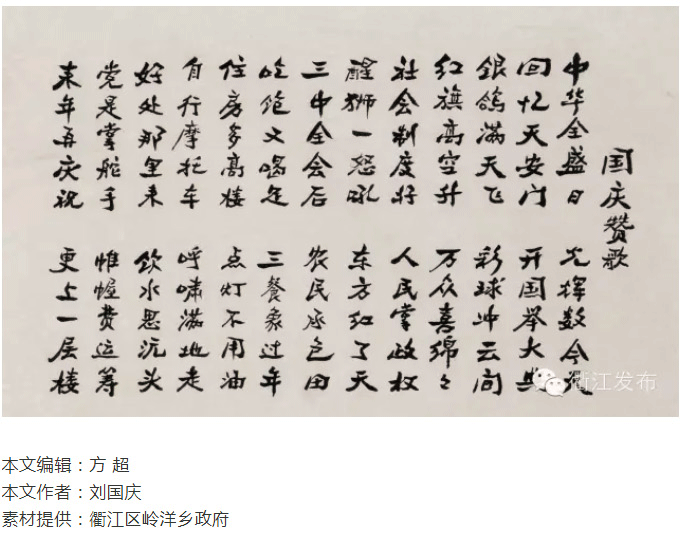 国庆赞歌
中华全盛日 光挥数今代
回忆天安门 开国举大典
银鸽满天飞 彩球冲云间
红旗高空升 万众喜绵々
社会制度好 人民掌政权
醒狮一怒吼 东方红了天
三中全会后 农民承包田
吃饱又喝足 三餐象过年
住房多高楼 点灯不用油
自行摩托车 呼啸满地走
好处那里来 饮水思沅头
党是掌舵手 帷幄费运筹
来年再庆祝 更上一层楼
衢江发布
本文编辑：方 超
本文作者：刘国庆
素材提供：衢江区岭洋乡政府